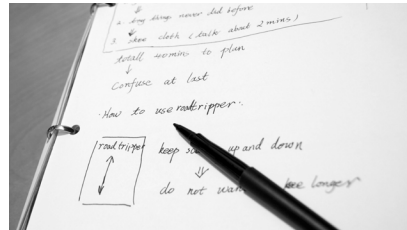 2. never did before
3. cloth (talk about 2 mins)
totall to plan
Confuse at last
How to use roadtripper
roadtripper keep up and down
do not longer